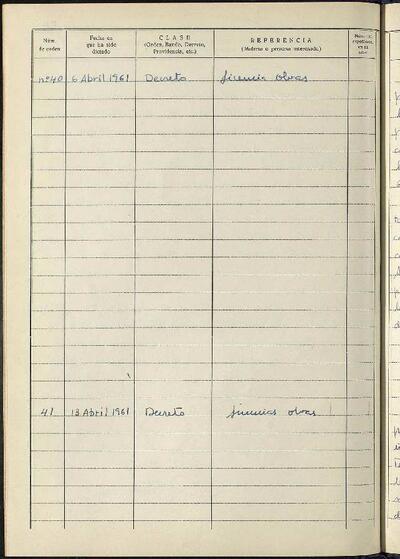 Núm. de orden
Fecha en que ha sido dictado
CLASE
(Orden, Bando, Decreto, Providencia, etc.)
REFERENCIA
(Materia o persona interesada.)
nº 40 6 Abril 1961 Decreto licencia obras
41 13 Abril 1961 Decreto licencias obras